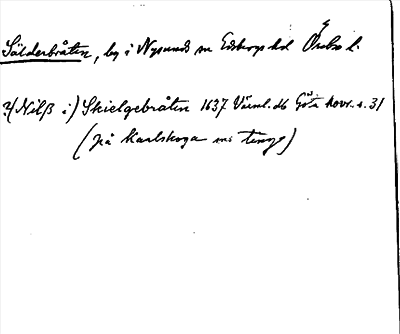 Sälderbråten, by i Nysunds sn Edsbergs hd Örebro l.
?/(Nilß i) Skielgebråten 1637 Värml. db Göta hovr. s. 31
(på Karlskoga ms ting)